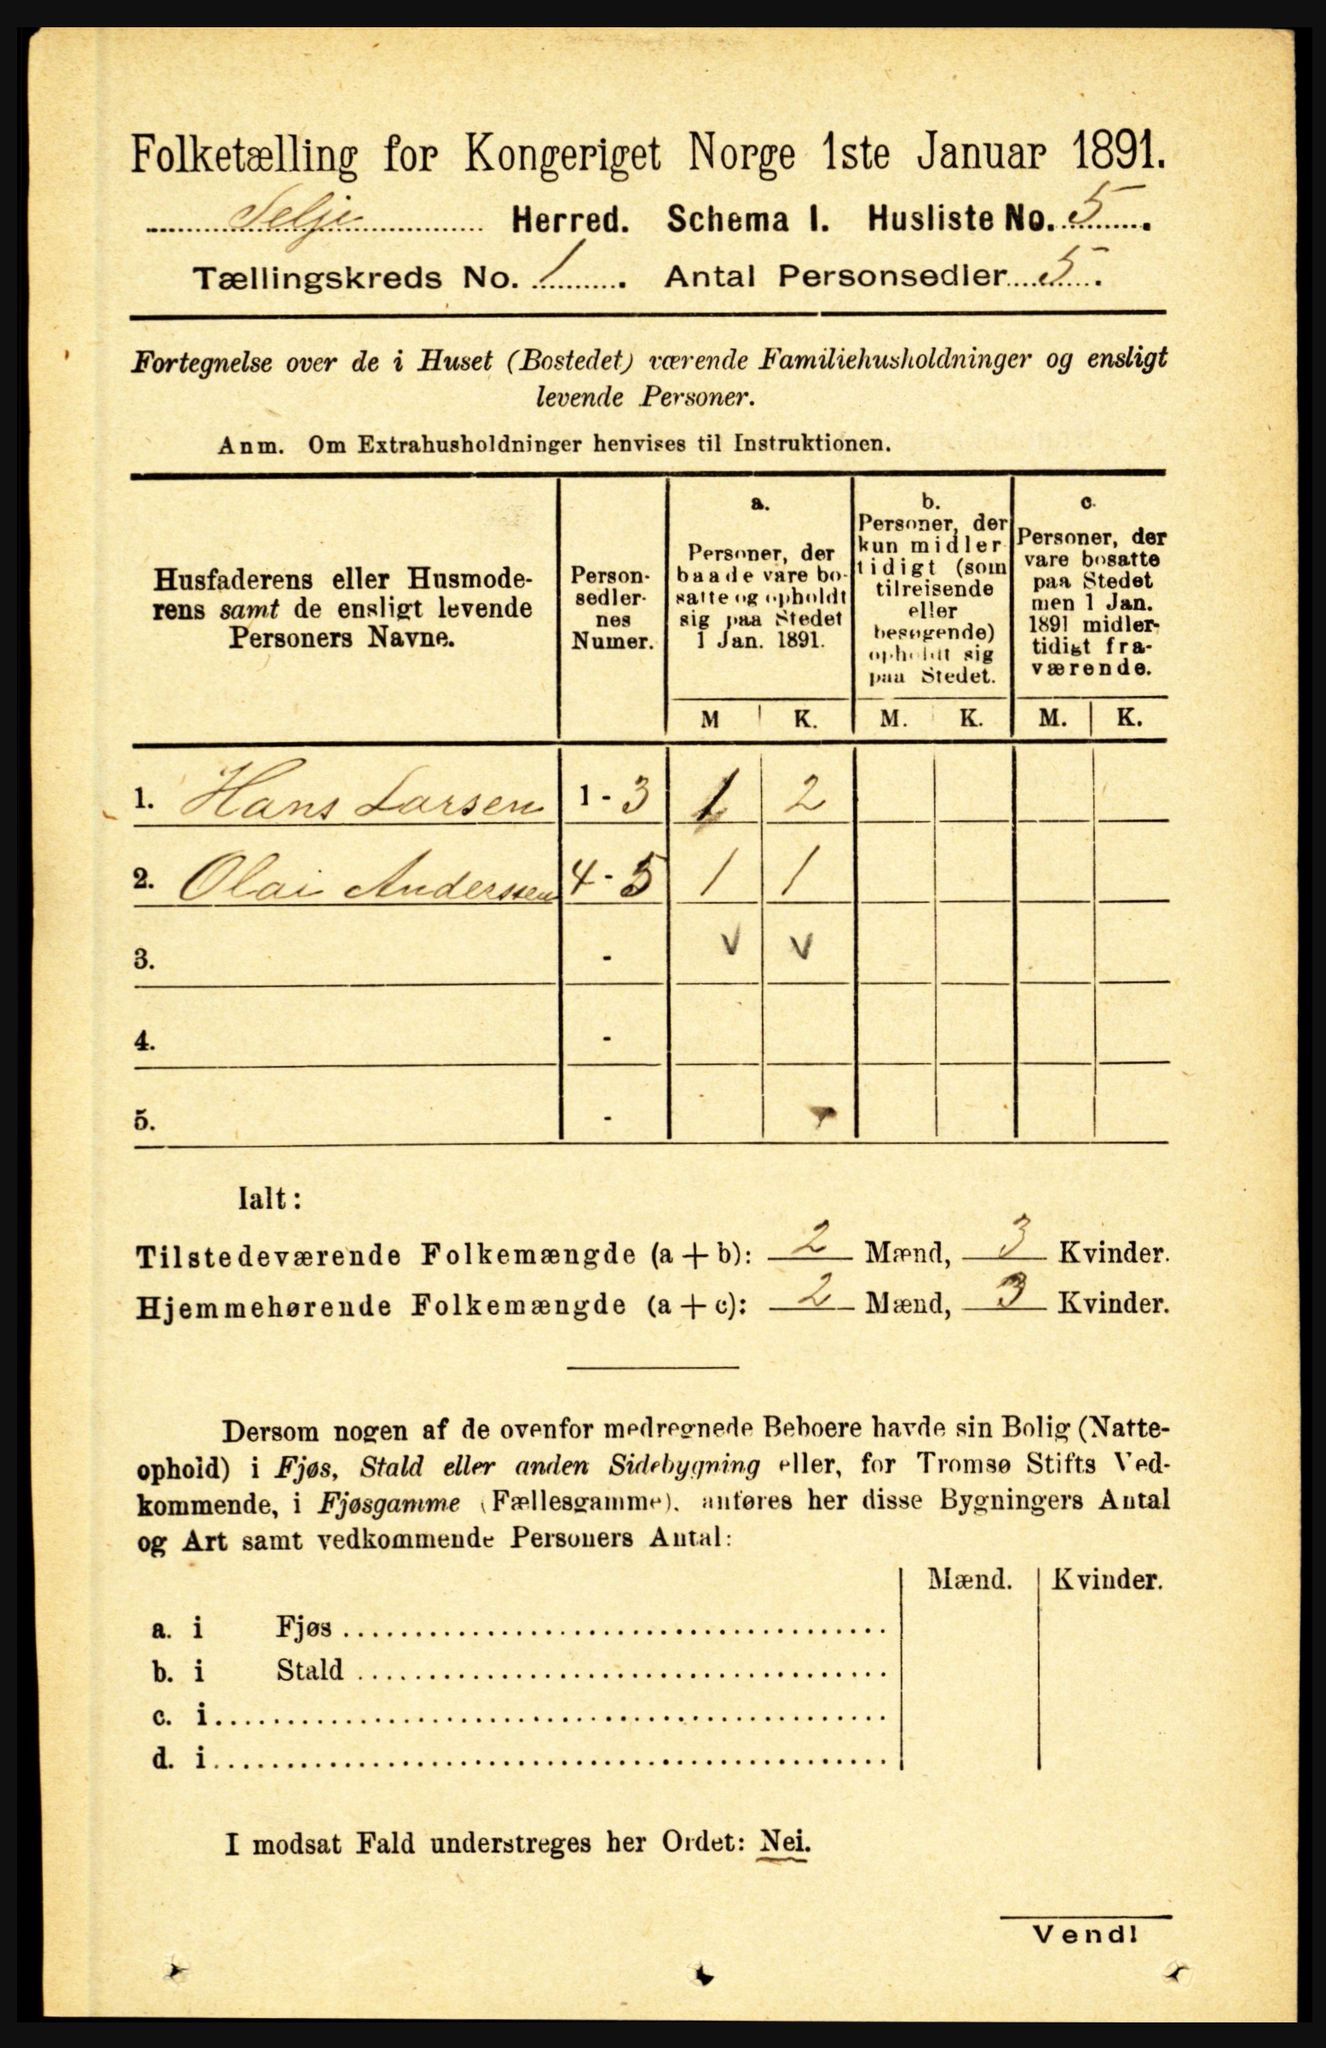 Folketælling for Kongeriget Norge 1ste Januar 1891.
Selje Herred. Schema I. Husliste No. 5.
Tællingskreds No. 1. Antal Personsedler 5.
Fortegnelse over de i Huset (Bostedet) værende Familiehusholdninger og ensligt
levende Personer.
Anm. Om Extrahusholdninger henvises til Instruktionen.
Husfaderens eller Husmode-
rens samt de ensligt levende
Personers Navne.
Person-
sedler-
nes
Numer.
a.
Personer, der
baade vare bo-
satte og opholdt
sig paa Stedet
1 Jan. 1891.
b.
Personer, der
kun midler
tidigt (som
tilreisende
eller
besøgende)
opholdt sig
paa Stedet.
c.
Personer, der
vare bosatte
paa Stedet
men 1 Jan.
1891 midler-
tidigt fra-
værende.
M K. M. K. M. K.
1. Hans Larsen 1 - 3 1 2
2. Olai Anderssen 4 - 5 1 1
3. - v v
4. -
5. -
Ialt:
Tilstedeværende Folkemængde (a + b): 2 Mænd, 3 Kvinder.
Hjemmehørende Folkemængde (a + c): 2 Mænd, 3 Kvinder.
Dersom nogen af de ovenfor medregnede Beboere havde sin Bolig (Natte-
ophold) i Fjøs, Stald eller anden Sidebygning eller, for Tromsø Stifts Ved-
kommende, i Fjøsgamme (Fællesgamme), anføres her disse Bygningers Antal
og Art samt vedkommende Personers Antal:
Mænd. Kvinder.
a. i Fjøs
b. i Stald
c. i
d. i
I modsat Fald understreges her Ordet: Nei.
Vend!